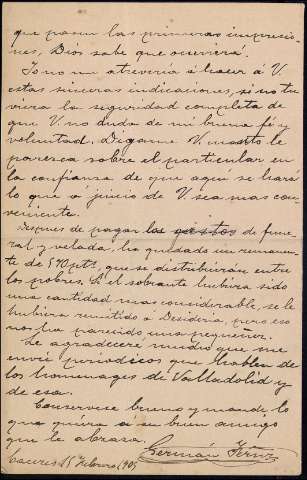 que pasen las primeras impresio-
nes, Dios sabe que ocurrirá.
Yo no me atrevería á hacer á V.
estas sinceras indicaciones, si no tu-
viera la seguridad completa de
que V. no duda de mi buena fé y
voluntad. Digame V. cuanto le
parezca sobre el particular en
la confianza de que aqui se hará
lo que á juicio de V. sea mas con-
veniente.
Despues de pagar los gastos de fune-
ral y velada, ha quedado un remanen-
te de 540 pts, que se distribuiran entre
los pobres. Si el sobrante hubiera sido
una cantidad mas considerable, se le
hubiera remitido á Desideria, pero eso
nos ha parecido una pequeñez.
Le agradeceré mucho que me
envie periodicos que hablen de
los homenages de Valladolid y
de esa.
Conservese bueno y mande lo
que quiera á su buen amigo
que le abraza.
Germán Fernz
Caceres 15 Febrero 1905